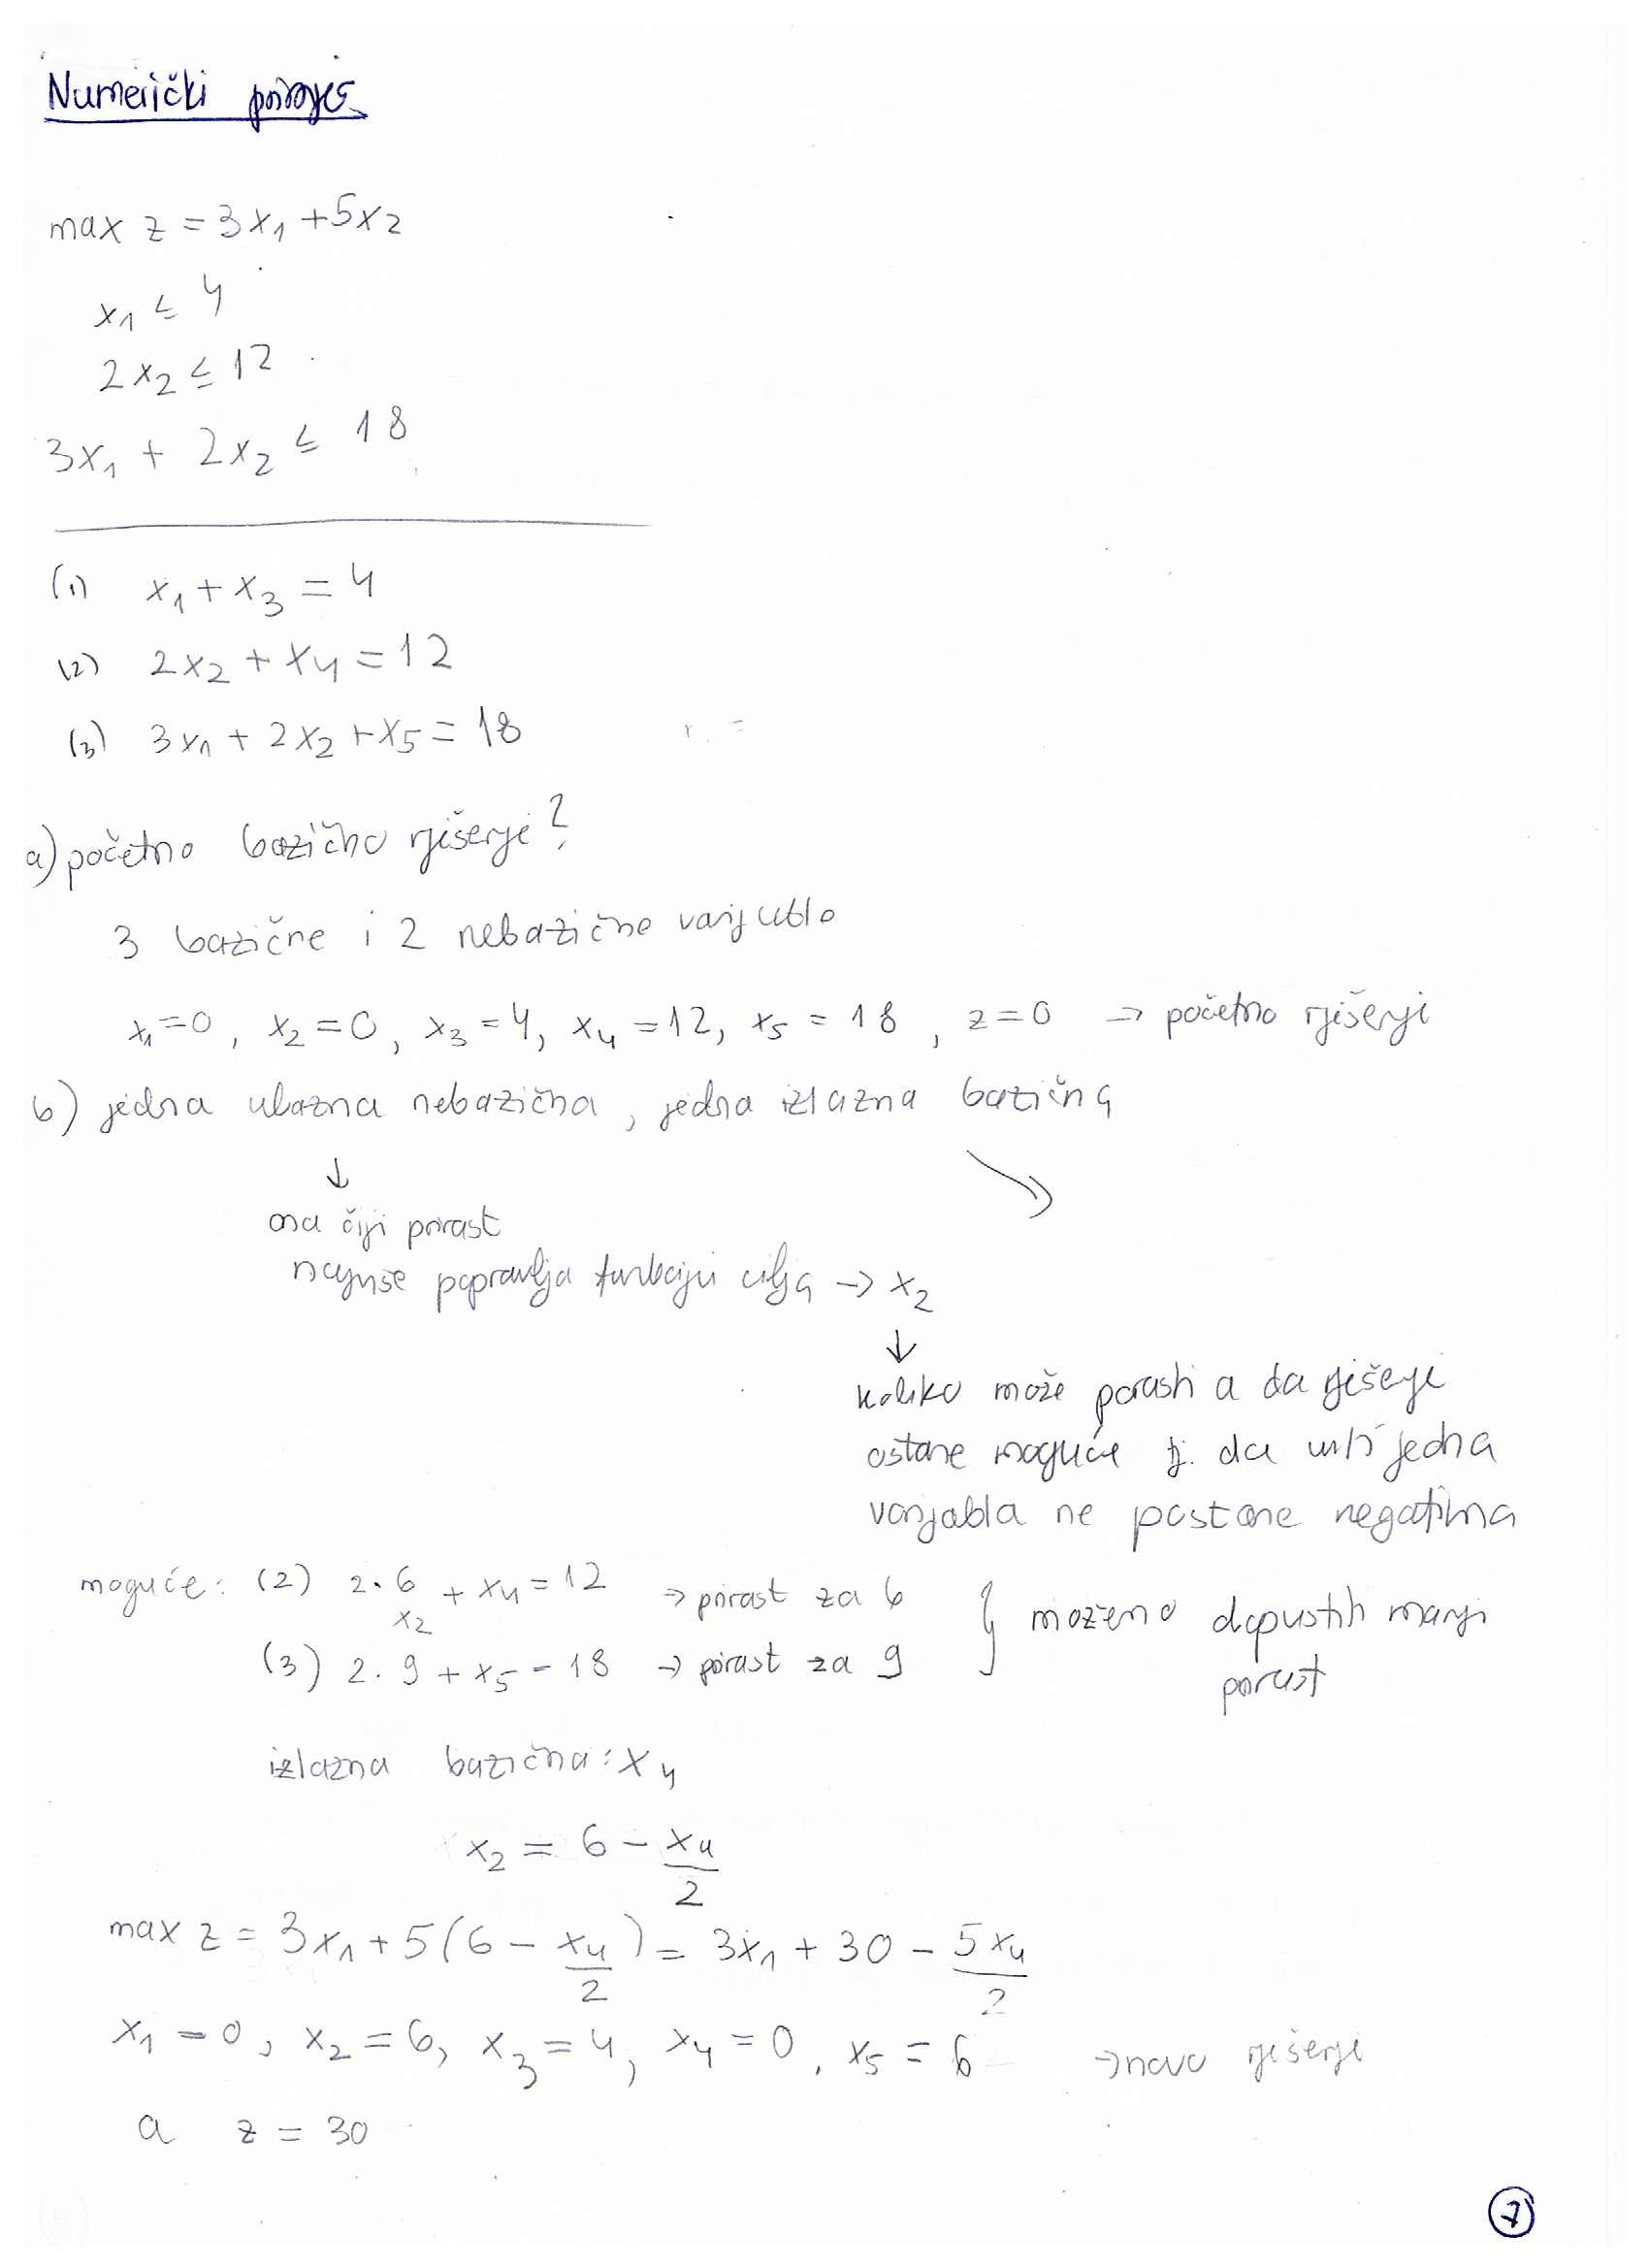 Numerički primjer
max z = 3x₁ + 5x₂
x₁ ≤ 4
2x₂ ≤ 12
3x₁ + 2x₂ ≤ 18
(1) x₁ + x₃ = 4
(2) 2x₂ + x₄ = 12
(3) 3x₁ + 2x₂ + x₅ = 18
a) početno bazično rješenje?
3 bazične i 2 nebazične varijable
x₁=0, x₂=0, x₃=4, x₄=12, x₅=18, z=0 → početno rješenje
b) jedna ulazna nebazična, jedna izlazna bazična
↓
ona čiji porast
najviše popravlja funkciju cilja → x₂
↓
koliko može porasti a da rješenje
ostane moguće tj. da niti jedna
varijabla ne postane negativna
moguće: (2) 2·6 + x₄ = 12 → porast za 6
x₂
(3) 2·9 + x₅ = 18 → porast za 9 } možemo dopustiti manji
porast
izlazna bazična: x₄
x₂ = 6 - x₄/2
max z = 3x₁ + 5(6 - x₄/2) = 3x₁ + 30 - 5x₄/2
x₁ = 0, x₂ = 6, x₃ = 4, x₄ = 0, x₅ = 6 → novo rješenje
a z = 30
7